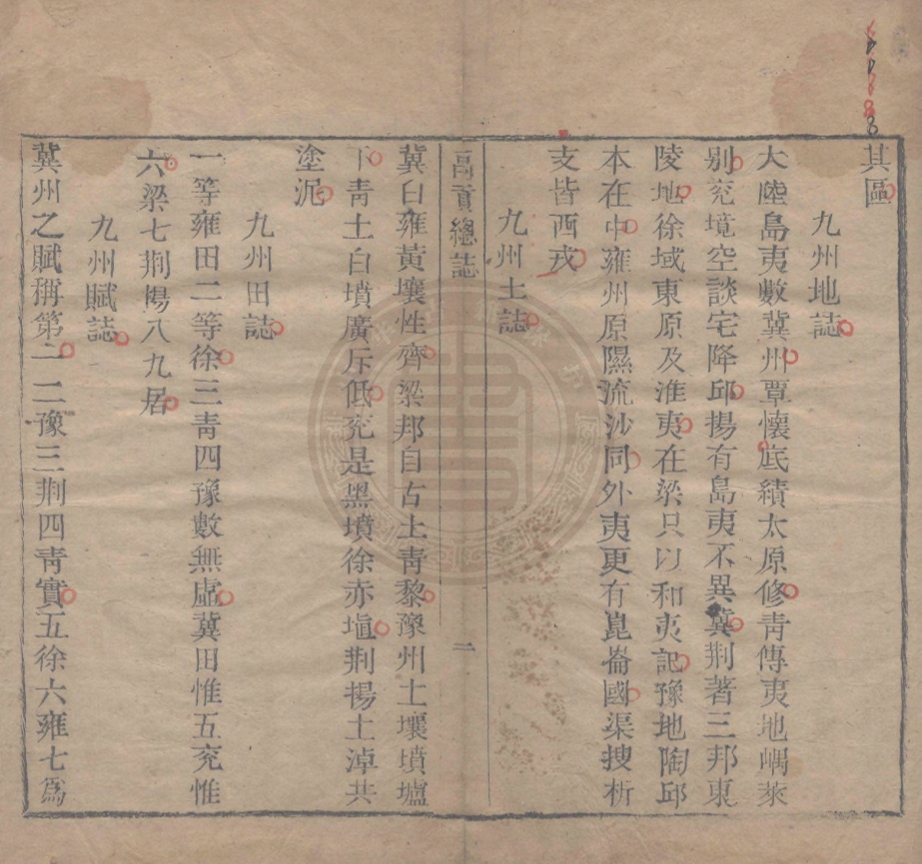 其區
九州地誌
大陸島夷數冀州覃懷底績太原修青傳夷地嵎萊
別兖境空談宅降邱揚有島夷不異冀荆著三邦東
陵地徐域東原及淮夷在梁只以和夷記豫地陶邱
本在中雍州原隰流沙同外夷更有崑崙國渠搜析
支皆西戎
九州土誌
禹貢總誌 二
冀白雍黃壤性齊梁邦自古土青黎豫州土壤墳壚
下青土白墳廣斥低兖是黑墳徐赤埴荆揚土淖共
塗泥
九州田誌
一等雍田二等徐三青四豫數無虛冀田惟五兖惟
六梁七荆陽八九居
九州賦誌
冀州之賦稱第一二豫三荆四青實五徐六雍七爲